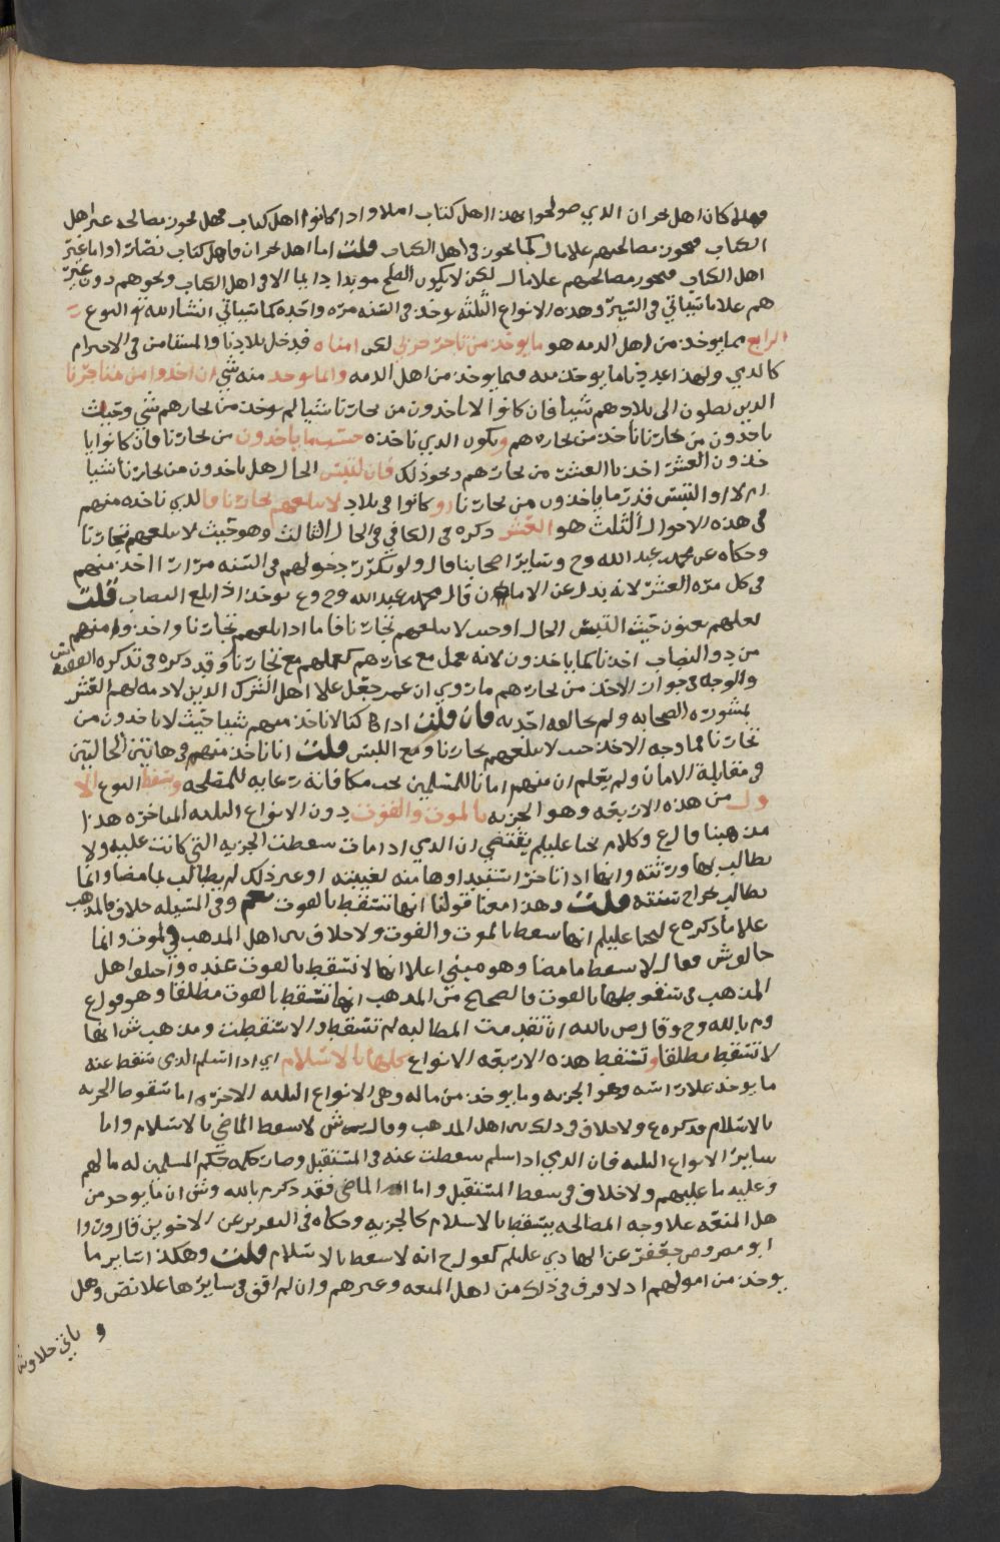 فهلا كان اهل نجران الذي صولحوا بهذا اهل كتاب ام لا واذا كانوا اهل كتاب فهل يجوز مصالحة غير اهل
الكتاب فيجوز مصالحتهم علا مال كما يجوز في اهل الكتاب قلت اما اهل نجران فاهل كتاب نصارا واما غير
اهل الكتاب فيجوز مصالحتهم علا مال لكن لا يكون الصلح موبدا دايما الا في اهل الكتاب ونحوهم دون غير
هم علا ما سياتي في السير وهذه الانواع الثلثة يوخذ في السنه مره واحده كما سياتي انشا الله تع النوع
الرابع مما يوخذ من اهل الذمه هو ما يوخذ من تاجر حربي لكن امناه فدخل بلادنا والمستامن في الاحترام
كالذمي ولهذا اعددنا ما يوخذ منه فيما يوخذ من اهل الذمه وانما يوخذ منه شي ان اخذوا من تجارنا
الذين يصلون الى بلادهم شيا فان كانوا لا ياخذون من تجارنا شيا لم يوخذ من تجارهم شي وحيث
ياخذون من تجارنا ناخذ من تجارهم ويكون الذي ناخذه حسب ما ياخذون من تجارنا فان كانوا يا
خذون العشر اخذنا العشر من تجارهم ونحو ذلك فان التبس الحال هل ياخذون من تجارنا شيا
ام لا او التبس قدر ما ياخذون من تجارنا او كانوا في بلاد لا يبلغهم تجارنا فالذي ناخذه منهم
في هذه الاحوال الثلث هو العشر ذكره في الكافي في الحال الثالث وهو حيث لا يبلغهم تجارنا
وحكاه عن محمد بن عبد الله وح وساير اصحابنا قال ولو تكرر دخولهم في السنه مرارا اخذ منهم
في كل مره العشر لانه بدل عن الامان قال محمد بن عبد الله وح وع يوخذ اذا بلغ النصاب قلت
لعلهم يعنون حيث التبس الحال او حيث لا يبلغهم تجارنا فاما اذا بلغهم تجارنا واخذوا منهم
من دون النصاب اخذنا كما ياخذون لانه عمل مع تجارهم كعملهم مع تجارنا وقد ذكره في تذكره
والوجه في جواز الاخذ من تجارهم ما روي ان عمر جعل علا اهل الشرك الذين لا ذمه لهم العشر
بمشورة الصحابه ولم يخالفه احد به فان قلت اذا كنا لا ناخذ منهم شيا حيث لا ياخذون من
تجارنا فما وجه الاخذ حيث لا يبلغهم تجارنا ومع اللبس قلت انا ناخذ منهم في هاتين الحالتين
في مقابلة الامان ولم يعلم ان منهم امانا للمسلمين يجب مكافاته رعايه للمصلحه وسقط النوع الا
ول من هذه الاربعه وهو الجزيه بالموت والفوت دون الانواع الثلثه المتاخره هذا
مذهبنا قال ع وكلام يحيا عليلم يقتضي ان الذمي اذا مات سقطت الجزيه التي كانت عليه ولا
يطالب بها ورثته وانها اذا تاخر استيفاوها منه لغيبته او غير ذلك لم يطالب لما مضا وانما
يطالب بخراج سنته قلت وهذا معنا قولنا انها تسقط بالفوت نعم وفي المسئله خلاف فالمذهب
علا ما ذكره ع ليحيا عليلم انها تسقط بالموت والفوت ولا خلاف بين اهل المذهب في الموت وانما
خالف ش فقال لا يسقط ما مضا وهو مبني اعلا انها لا تسقط بالفوت عنده واختلفوا اهل
المذهب في سقوطها بالفوت فالصحيح من المذهب انها تسقط بالفوت مطلقا وهو قول ع
وم بالله وح وقال ص بالله ان تقدمت المطالبه لم تسقط والا سقطت ومذهب ش انها
لا تسقط مطلقا وتسقط هذه الاربعه الانواع كلها بالاسلام اي اذا اسلم الذمي سقط عنه
ما يوخذ علا راسه وهو الجزيه وما يوخذ من ماله وهي الانواع الثلثه الاخره اما سقوط الجزيه
بالاسلام فذكره ع ولا خلاف في ذلك بين اهل المذهب وقال ش لا يسقط الماضي بالاسلام واما
ساير الانواع الثلثه فان الذمي اذا اسلم سقطت عنه في المستقبل وصار حكمه حكم المسلمين له ما لهم
وعليه ما عليهم ولا خلاف في سقط المستقبل واما الماضي فقد ذكر م بالله وش ان ما يوخذ من
هل المنعه علا وجه المصالحه يسقط بالاسلام كالجزيه وحكاه في التقرير عن الاخوين قال وروا
ابو مضر وص جعفر عن الهادي عليلم كقول ح انه لا يسقط بالاسلام قلت وهكذا ساير ما
يوخذ من اموالهم اذ لا فرق في ذلك من اهل المنعه وغيرهم وان لم اقف في سايرها علا نص وهل
و ياتي خلاف ش